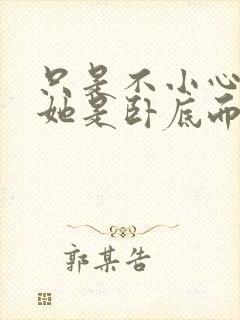 只是不小心
她是卧底而
郭某告